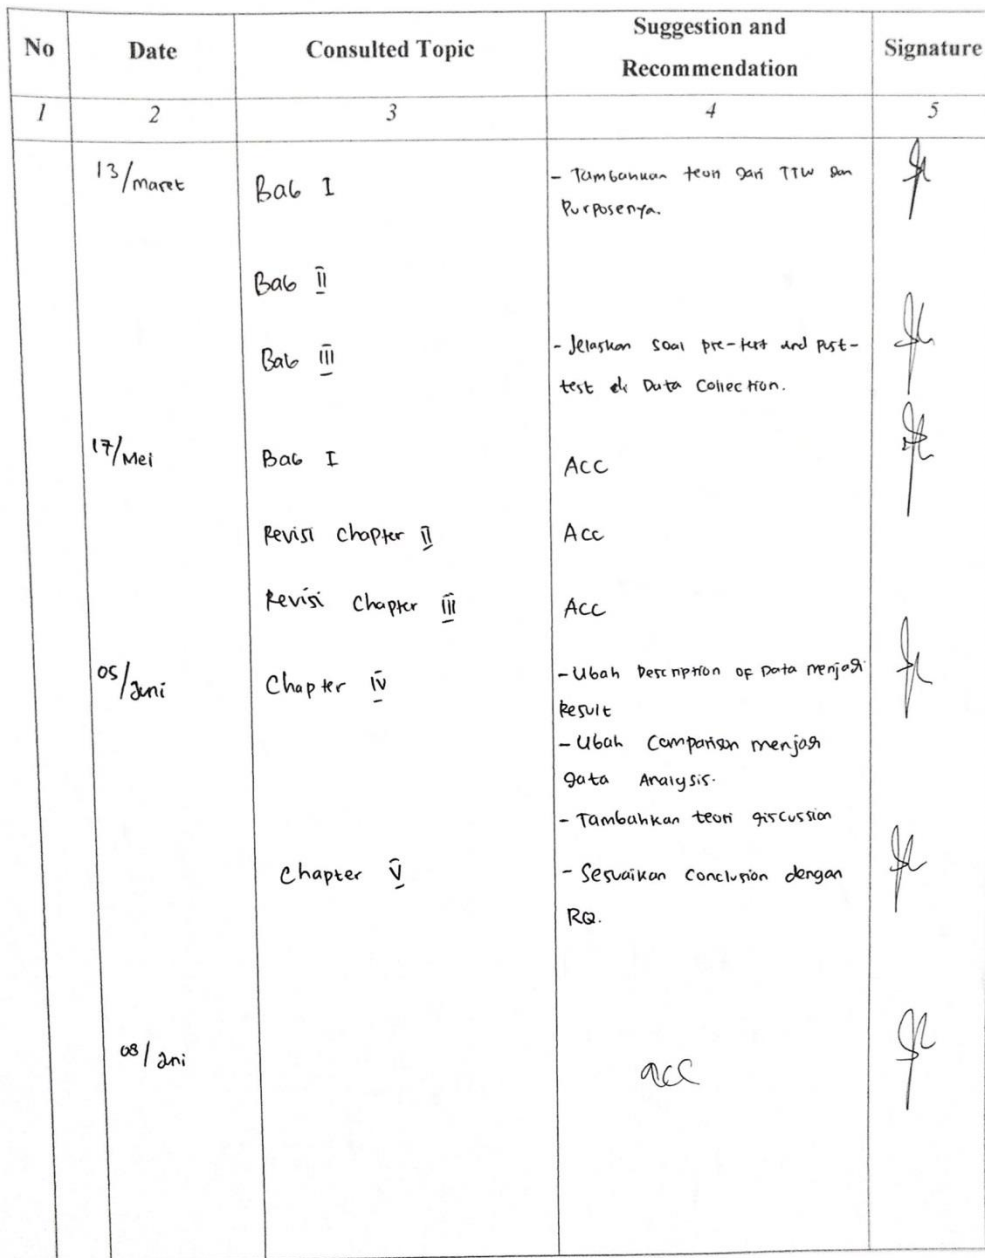 No Date Consulted Topic Suggestion and Recommendation Signature
1 2 3 4 5
13/maret Bab I - Tambahkan teori dari TTW dan
Purposenya.
Bab II
Bab III - Jelaskan soal pre-test and post-
test di Data Collection.
17/Mei Bab I ACC
Revisi Chapter II Acc
Revisi Chapter III Acc
05/Juni Chapter IV - Ubah Description of Data menjadi
Result
- Ubah Comparison menjadi
data Analysis.
- Tambahkan teori discussion
Chapter V - Sesuaikan Conclusion dengan
RQ.
08/Juni acc